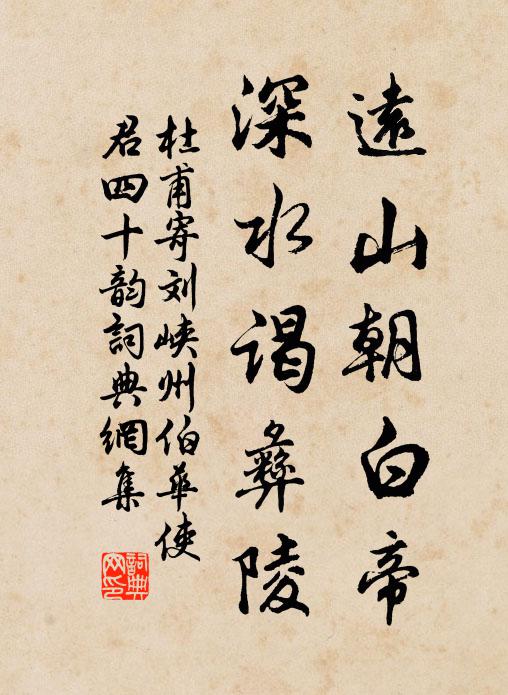 遠山朝白帝
深水謁彝陵
杜甫寄刘峡州伯華使
君四十韵詞典網集
詞典
网印